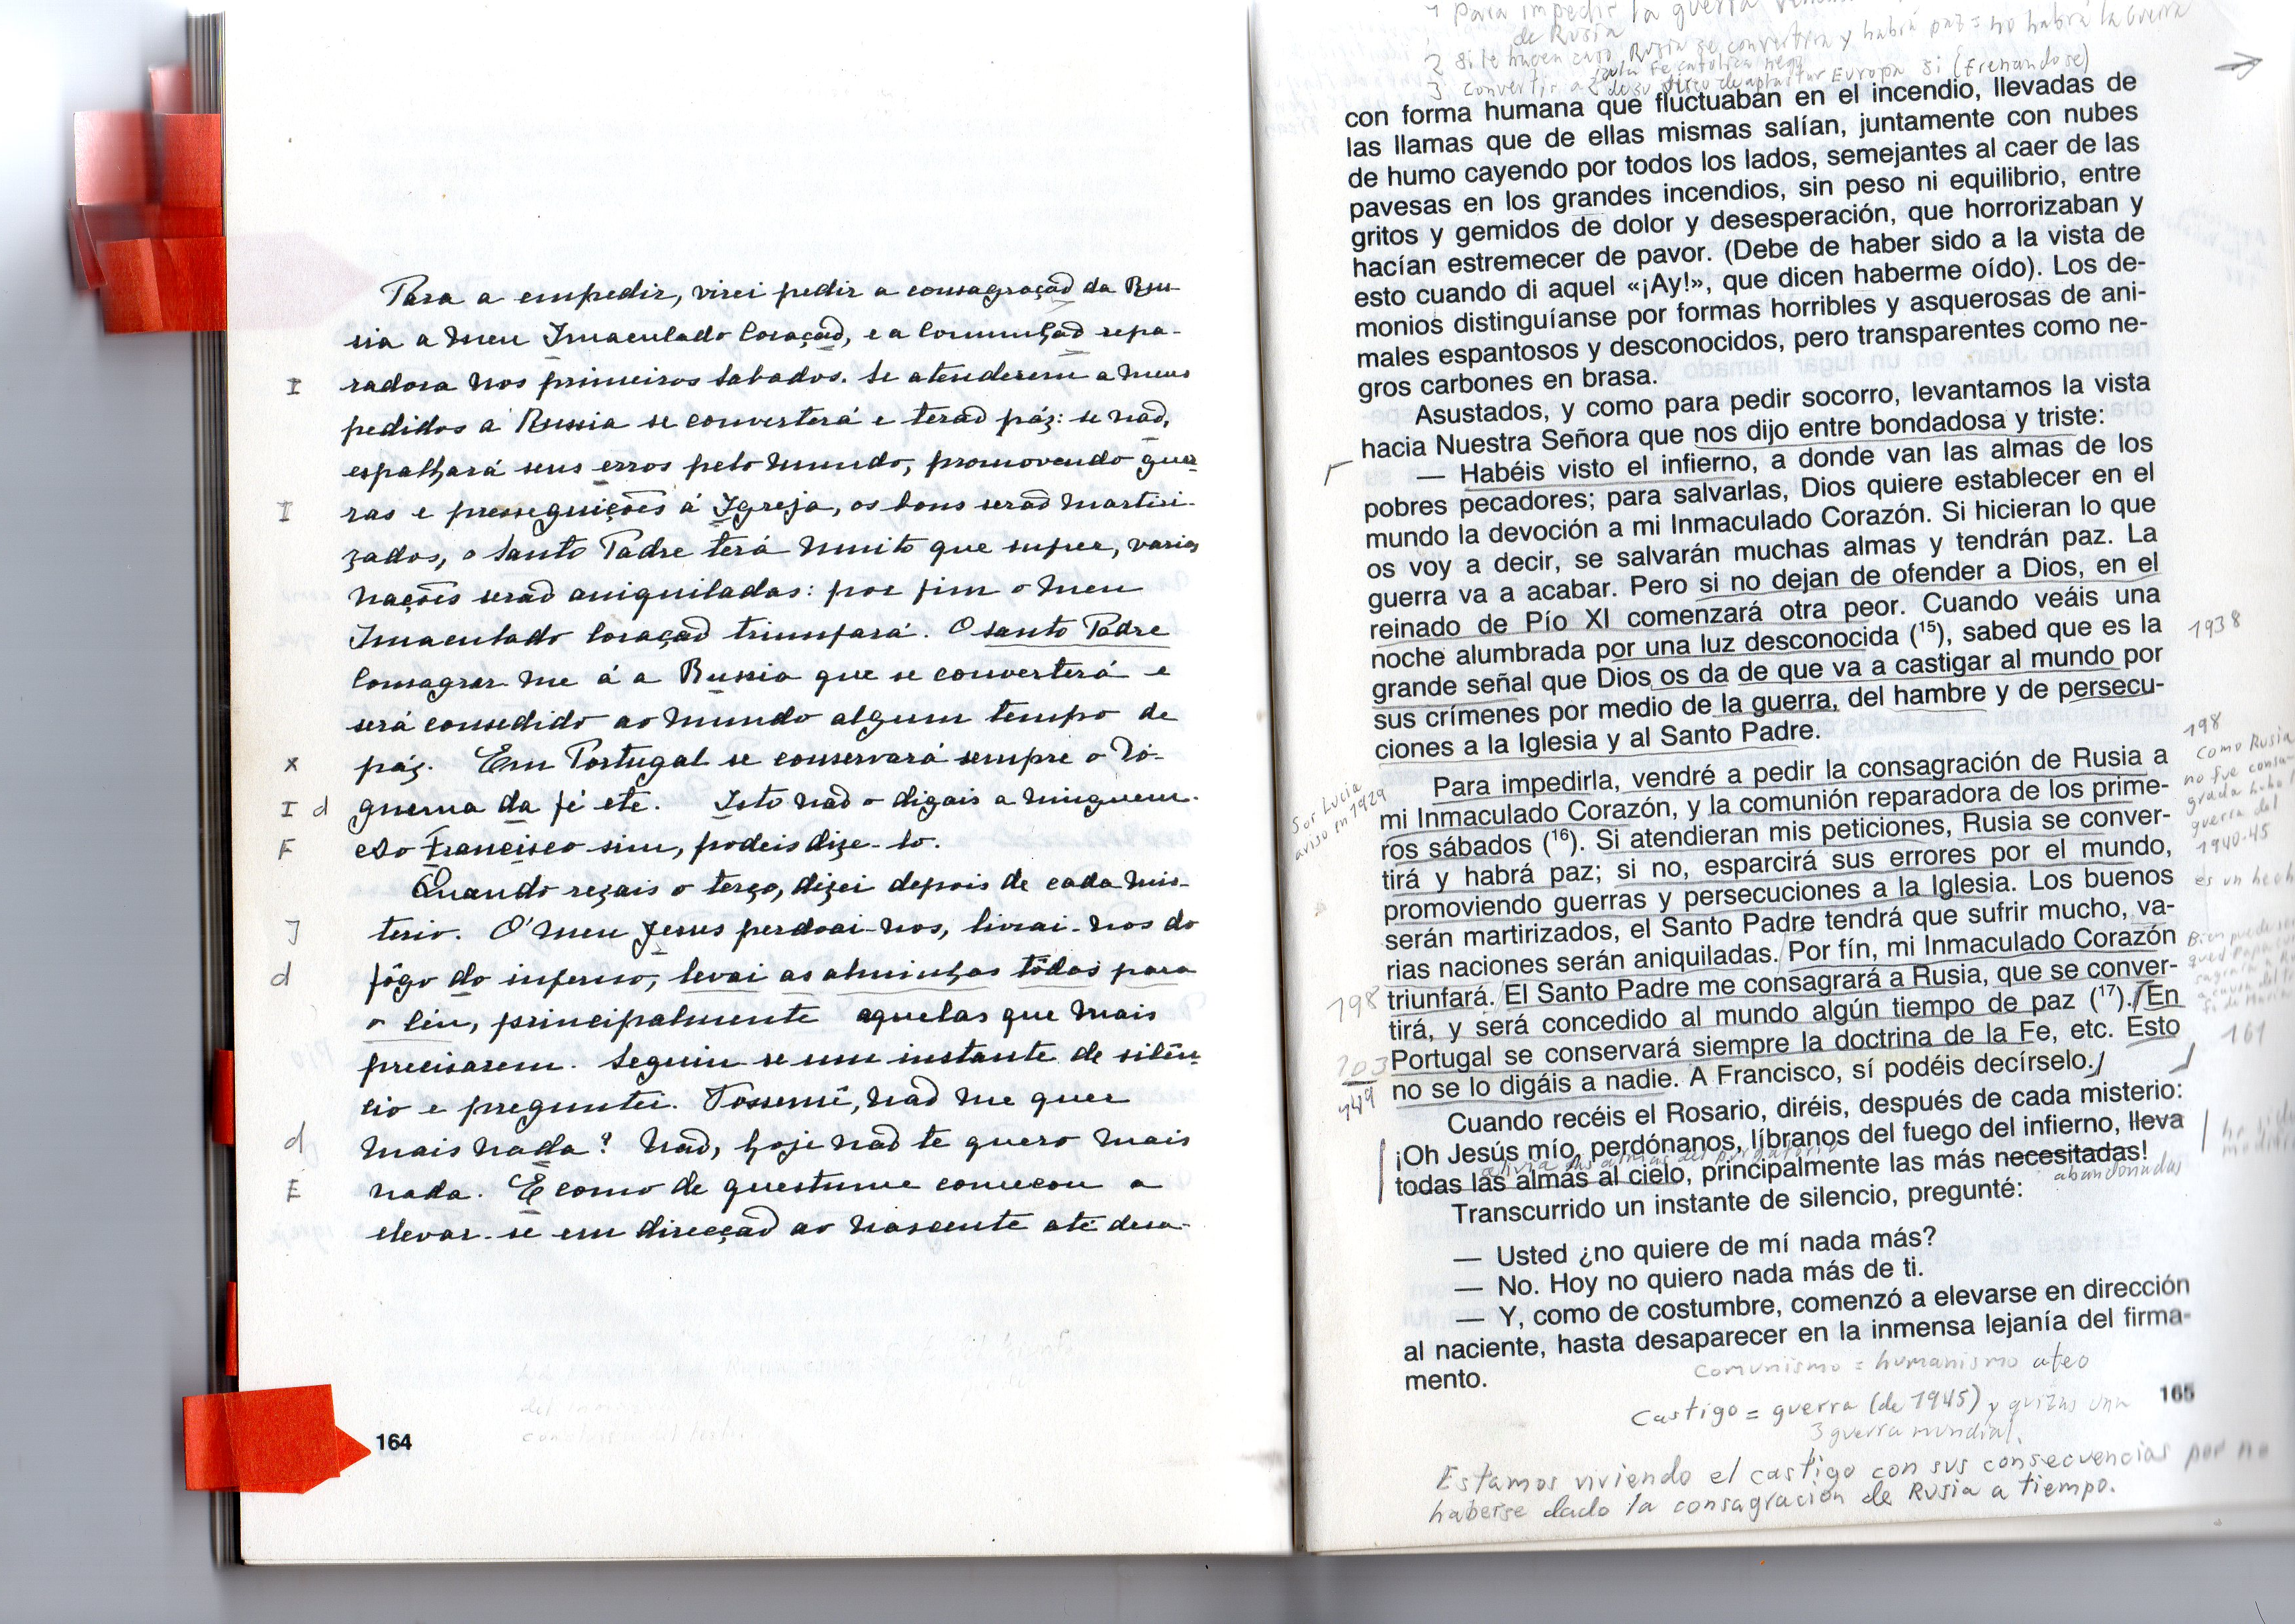 Para a empedir, virei pedir a consagração da Rus-
sia a meu Imaculado Coração, e a Comunhão repa-
I radora nos primeiros sabados. Se atenderem a meus
pedidos a Russia se converterá e terão páz: se não,
espalhará seus erros pelo mundo, promovendo guer
I ras e presseguições á Igreja, os bons serão martiri-
zados, o Santo Padre terá muito que sufrer, varias
nações serão aniquiladas: por fim o meu
Imaculado Coração triunfará. O Santo Padre
Consagrar-me á a Russia que se converterá e
será consedido ao mundo algum tempo de
x páz. Em Portugal se conservará sempre o Dó-
I d guema da fé etc. Isto não o digais a ninguem.
F Ao Francisco sim, podeis dize-lo.
Quando rezais o terço, dizei depois de cada mis-
J terio. O' meu Jesus perdoai-nos, livrai-nos do
d fôgo do inferno, levai as alminhas tôdas para
o Céu, principalmente aquelas que mais
precisarem. Seguiu se um instante de silên
cio e preguntei. Vossemcê, não me quer
d mais nada? Não, hoje não te quero mais
E nada. E como de questume começou a
elevar-se em direcção ao nascente até desa-
164
1 Para impedir la guerra
de Rusia
2 Si le hacen caso Rusia se convertira y habrá paz = no habrá la Guerra
3 Convertir a la Fe católica
Europa si (frenandose)
con forma humana que fluctuaban en el incendio, llevadas de
las llamas que de ellas mismas salían, juntamente con nubes
de humo cayendo por todos los lados, semejantes al caer de las
pavesas en los grandes incendios, sin peso ni equilibrio, entre
gritos y gemidos de dolor y desesperación, que horrorizaban y
hacían estremecer de pavor. (Debe de haber sido a la vista de
esto cuando di aquel «¡Ay!», que dicen haberme oído). Los de-
monios distinguíanse por formas horribles y asquerosas de ani-
males espantosos y desconocidos, pero transparentes como ne-
gros carbones en brasa.
Asustados, y como para pedir socorro, levantamos la vista
hacia Nuestra Señora que nos dijo entre bondadosa y triste:
— Habéis visto el infierno, a donde van las almas de los
pobres pecadores; para salvarlas, Dios quiere establecer en el
mundo la devoción a mi Inmaculado Corazón. Si hicieran lo que
os voy a decir, se salvarán muchas almas y tendrán paz. La
guerra va a acabar. Pero si no dejan de ofender a Dios, en el
reinado de Pío XI comenzará otra peor. Cuando veáis una
noche alumbrada por una luz desconocida (15), sabed que es la
grande señal que Dios os da de que va a castigar al mundo por
sus crímenes por medio de la guerra, del hambre y de persecu-
ciones a la Iglesia y al Santo Padre.
Para impedirla, vendré a pedir la consagración de Rusia a
mi Inmaculado Corazón, y la comunión reparadora de los prime-
ros sábados (16). Si atendieran mis peticiones, Rusia se conver-
tirá y habrá paz; si no, esparcirá sus errores por el mundo,
promoviendo guerras y persecuciones a la Iglesia. Los buenos
serán martirizados, el Santo Padre tendrá que sufrir mucho, va-
rias naciones serán aniquiladas. Por fín, mi Inmaculado Corazón
triunfará. El Santo Padre me consagrará a Rusia, que se conver-
tirá, y será concedido al mundo algún tiempo de paz (17). En
Portugal se conservará siempre la doctrina de la Fe, etc. Esto
no se lo digáis a nadie. A Francisco, sí podéis decírselo.
Cuando recéis el Rosario, diréis, después de cada misterio:
¡Oh Jesús mío, perdónanos, líbranos del fuego del infierno, lleva
alivia las almas del purgatorio
todas las almas al cielo, principalmente las más necesitadas!
abandonadas
Transcurrido un instante de silencio, pregunté:
— Usted ¿no quiere de mí nada más?
— No. Hoy no quiero nada más de ti.
— Y, como de costumbre, comenzó a elevarse en dirección
al naciente, hasta desaparecer en la inmensa lejanía del firma-
mento.
Sor Lucia
aviso en 1929
198
203
449
1938
198
Como Rusia
no fue consa-
grada hubo
guerra del
1940-45
es un hech
161
comunismo = humanismo ateo
165
Castigo = guerra (de 1945) y quizas una
3 guerra mundial.
Estamos viviendo el castigo con sus consecuencias por no
haberse dado la consagración de Rusia a tiempo.